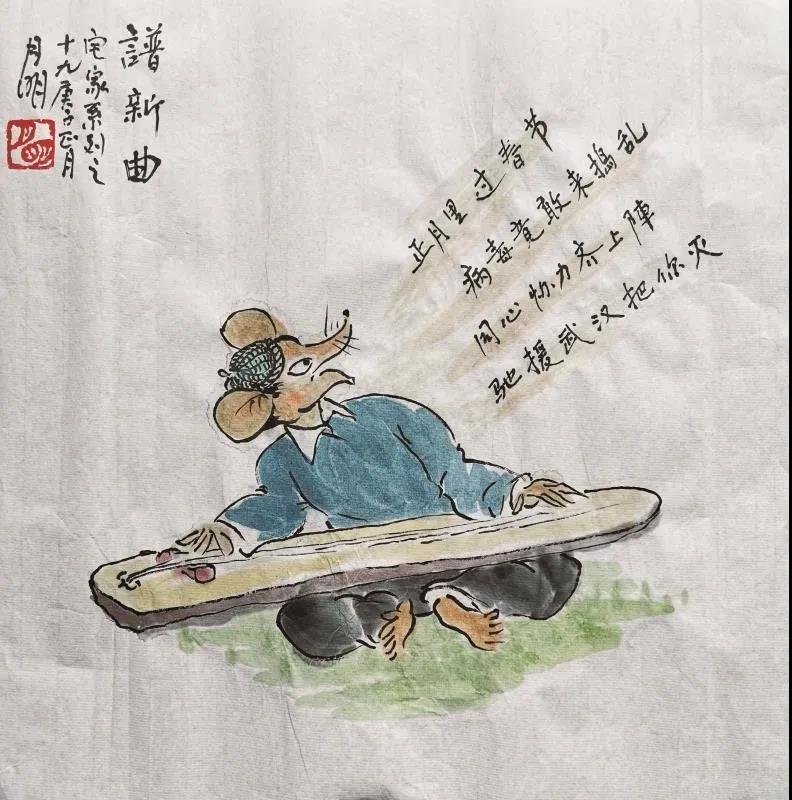 譜新曲
宅家系列之
十九庚子正月
月明
正月里过春节
病毒竟敢来捣乱
同心协力齐上陣
驰援武汉把你灭